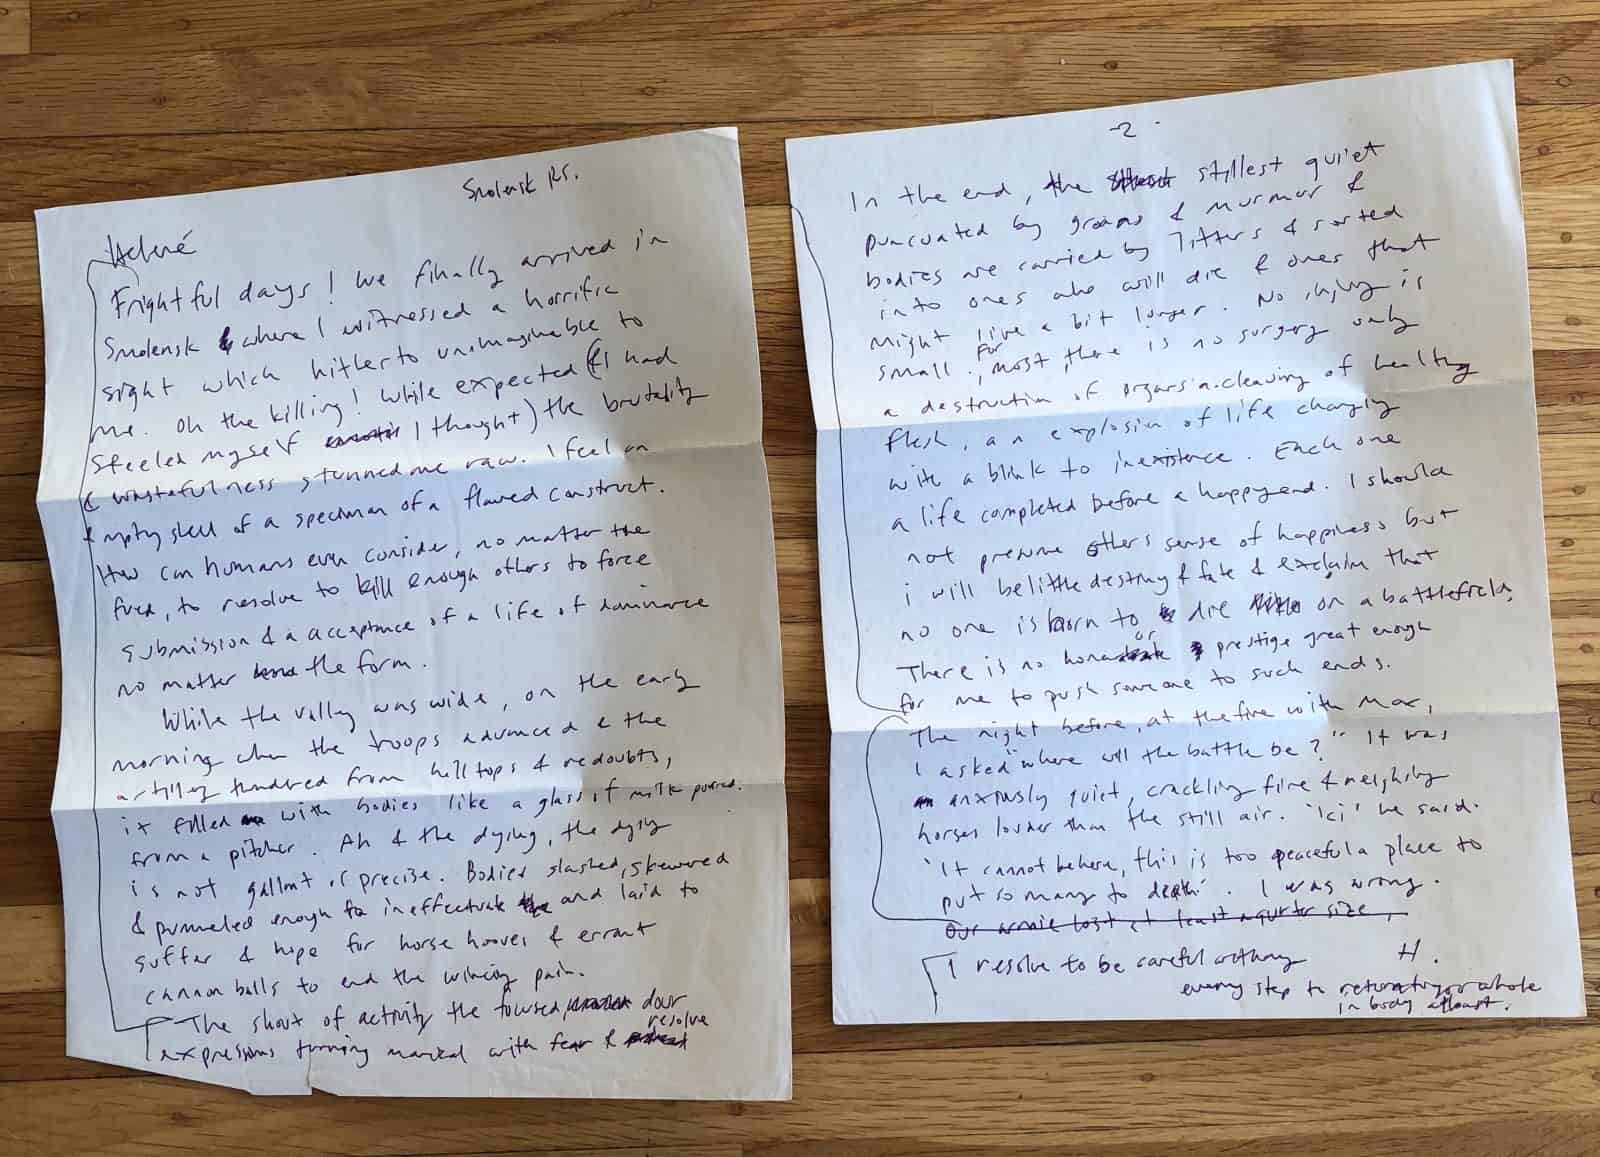 Smolensk RS.
Helené
Frightful days! We finally arrived in
Smolensk & where I witnessed a horrific
sight which hitlerto unimaginable to
me. Oh the killing! While expected (I had
Steeled myself I thought) the brutality
& wastefulness stunned me raw. I feel an
empty shell of a specman of a flawed construct.
How can humans even consider, no matter the
fued, to resolve to kill enough others to force
submission & a acceptance of a life of dominance
no matter the form.
While the valley was wide, on the early
morning when the troops advanced & the
artillery thundred from hilltops & redoubts,
it filled with bodies like a glass of milk poured
from a pitcher. Ah & the dying, the dying
is not gallant or precise. Bodies slashed, skewered
& pumeled enough to ineffectual and laid to
suffer & hope for horse hooves & errant
cannon balls to end the wincing pain.
The shout of activity the focused, dour
expressions turning manical with fear & resolve
-2-
In the end, the stillest quiet
puncuated by groans & murmur &
bodies are carried by litters & sorted
into ones who will die & ones that
might live a bit longer. No injury is
small. For most, there is no surgery only
a destruction of organs, a cleaving of healthy
flesh, an explosion of life changing
with a blink to inexistence. Each one
a life completed before a happy end. I should
not presume others sense of happiness but
i will belittle destiny & fate & exclaim that
no one is born to die on a battlefield,
There is no honor or prestige great enough
for me to push someone to such ends.
The night before, at the fire with Max,
I asked "where will the battle be?" It was
anxiously quiet, crackling fire & neighing
horses louder than the still air. 'Ici' he said.
'It cannot be here, this is too peaceful a place to
put so many to death'. I was wrong.
Our armie lost at least a qurter size,
I resolve to be careful
H.
every step to return to you whole
in body atleast.